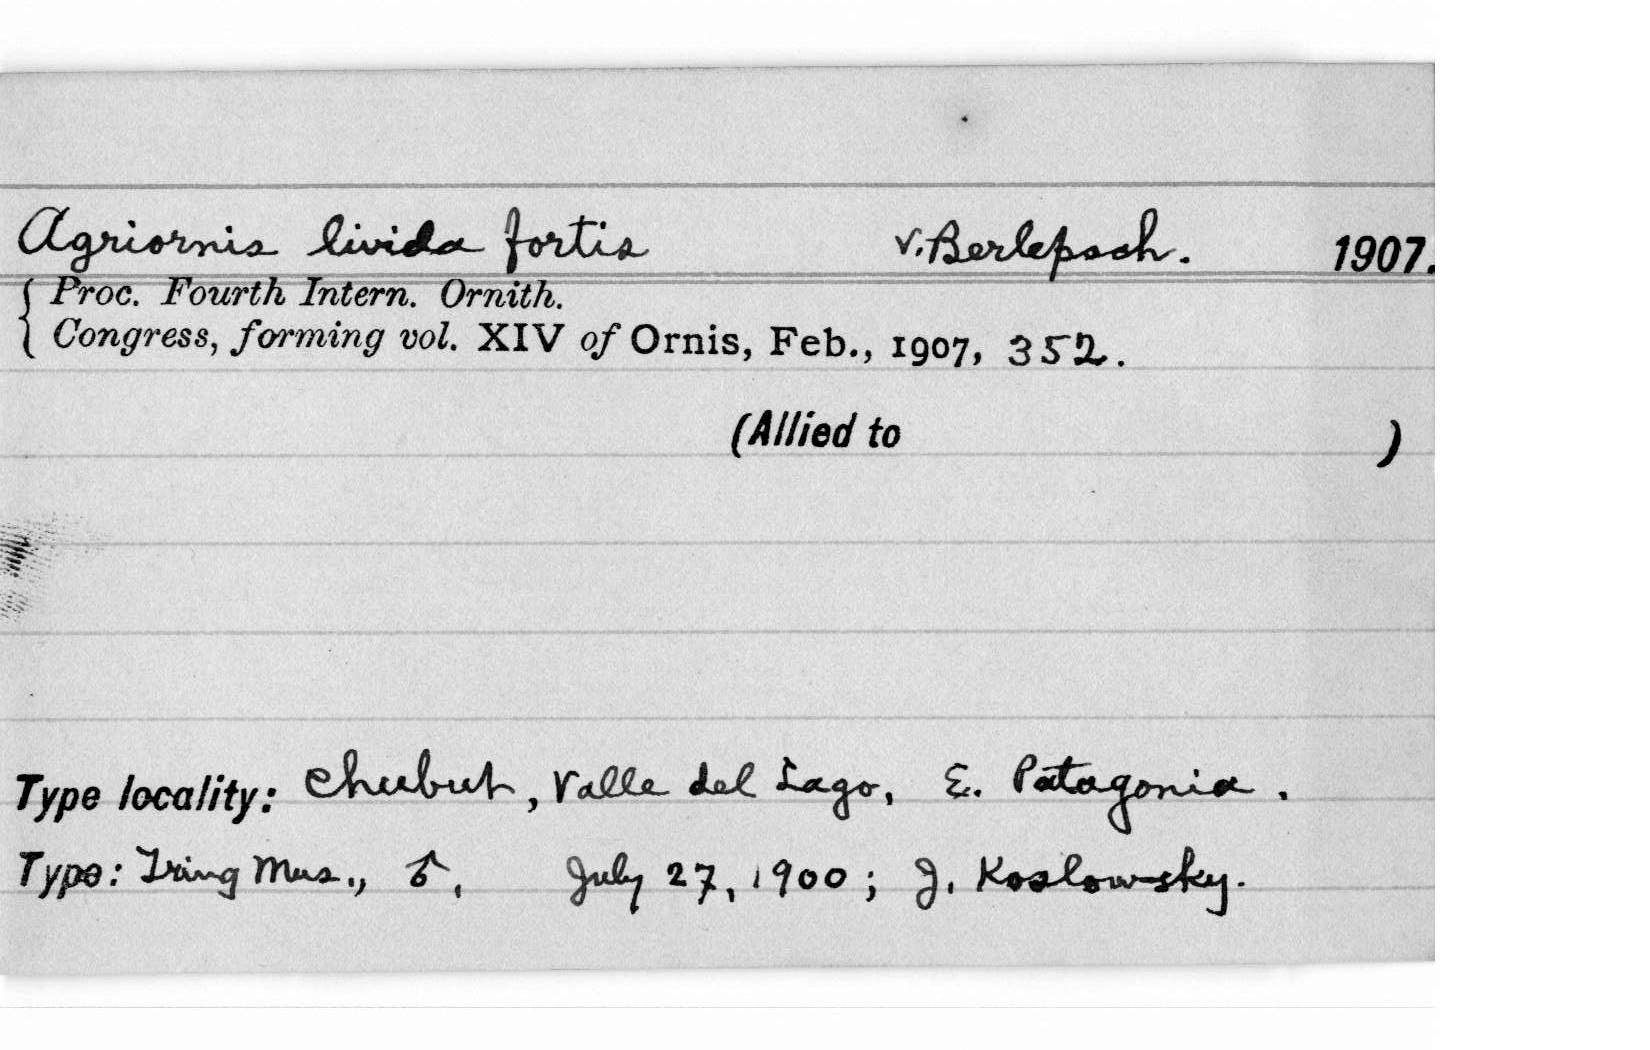 Agriornis livida fortis v. Berlepsch. 1907.
{ Proc. Fourth Intern. Ornith.
Congress, forming vol. XIV of Ornis, Feb., 1907, 352.
(Allied to )
Type locality: Chubut, Valle del Lago, E. Patagonia.
Type: Tring Mus., ♂, July 27, 1900; J. Koslowsky.